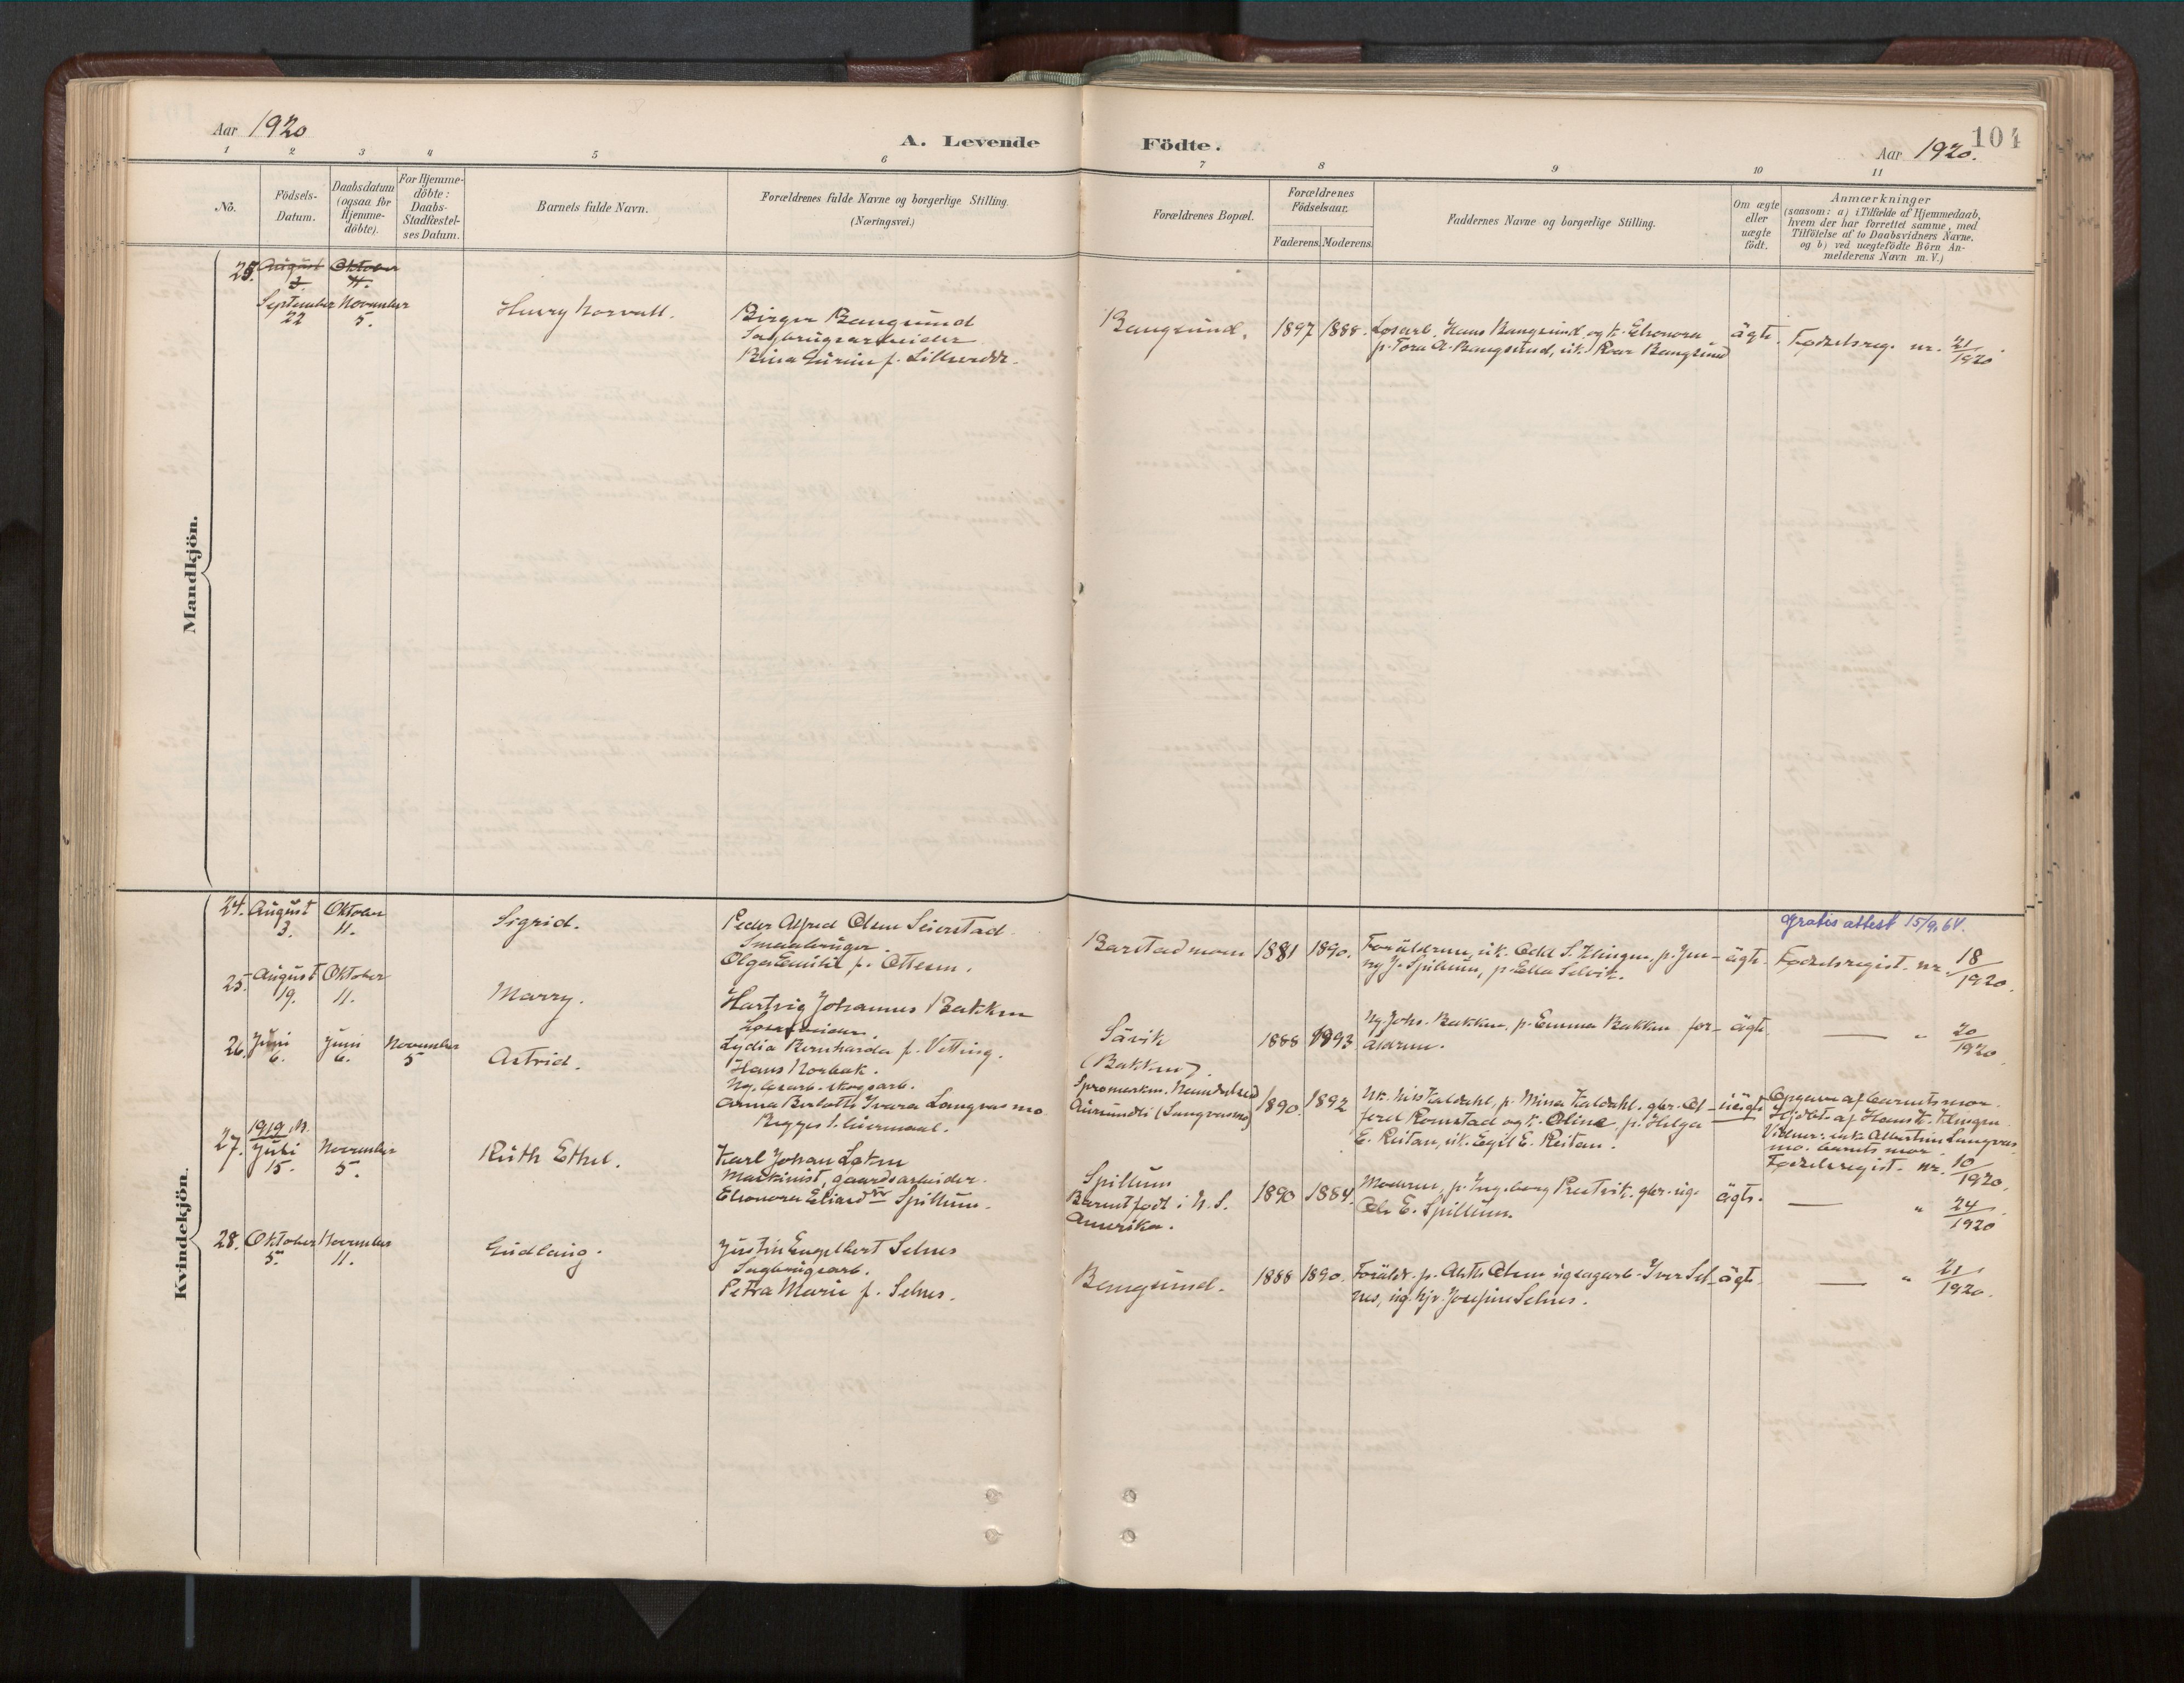 Aar 1920
A. Levende Födte.
Aar 1920.
104
1 2 3 4 5 6 7 8 9 10 11
No.
Födsels-
Datum.
Daabsdatum
(ogsaa for
Hjemme-
döbte).
For Hjemme-
döbte:
Daabs-
Stadfæstel-
ses Datum.
Barnets fulde Navn.
Forældrenes fulde Navne og borgerlige Stilling.
(Næringsvei.)
Forældrenes Bopæl.
Forældrenes
Födselsaar.
Faderens. Moderens.
Faddernes Navne og borgerlige Stilling.
Om ægte
eller
uægte
födt.
Anmærkninger
(saasom: a) i Tilfælde af Hjemmedaab,
hvem der har forrettet samme, med
Tilföielse af to Daabsvidners Navne,
og b) ved uægtefödte Börn An-
melderens Navn m. V.)
Mandkjön.
25. August Oktober
3. 11.
September November
22 5.
Henry Norvall.
Birger Bangsund
Sagbrugsarbeider
Bangsund.
1897 1888.
Losarb. Hans Bangsund og k. Elenora
p. Tora A. Bangsund, uk. Roar Bangsund
ägte.
Fødselsreg. nr. 21/1920
Kvindekjön.
24. August Oktober
3. 11.
Sigrid.
Peder Alfred Olsen Seierstad
Smaabruger.
Olga Emilie f. Ottesen.
Barstadmoen
1881 1890.
Foräldrene, uk. Odd S. Klingen, p. Jen-
ny J. Spillum, p. Ella Selvik.
ägte.
Gratis attest 15/9.64.
Fødselsregist. nr. 18/1920.
25. August Oktober
19. 11.
Marry.
Hartvig Johannes Bakken
Losarbeider.
Lydia Bernharda f. Vetting.
Sävik
(Bakken).
1888 1893
Ng. Johs. Bakken, p. Emma Bakken for-
äldrene.
ägte.
— " 20/1920
26. Juni Juni November
6. 6. 5
Astrid.
Hans Norbak.
Ng. losarb. skogsarb.
Anna Berlotte Ivara Langvasmo
Begges 1. leiermaal.
Aurundli (Langvasmo)
1890. 1892
Uk. Nils Kaldahl, p. Mina Kaldahl. gbr. Al-
fred Romstad og k. Oline, p. Helga
E. Reitan, uk. Egil E. Reitan.
uägte
Opgave af barnets mor.
Hjdbt. af Hans K. Klingen.
Vidner: enke Albertine Langvas
mo. barnets mor.
Fødselsregist. nr. 10/1920.
27. 1919
Juli November
15. 5.
Ruth Ethel.
Karl Johan Løken
Maskinist, gaardsarbeider.
Elenora Eliard Spillum.
Spillum
Barnet født i N. S.
Amerika.
1890 1884.
Moderen, p. Ingeborg Rustvik. gbr. ug.
Ole E. Spillum.
ägte.
— " 24/1920
28. Oktober November
5. 11.
Gudlaug.
Justin Engelbert Selnes
Sagbrugsarb.
Petra Marie f. Selnes.
Bangsund.
1888 1890.
Foräldr. p. Olsen ug sagarb. Iver Sel-
nes, ug. hjv. Josefine Selnes.
ägte
— " 21/1920.